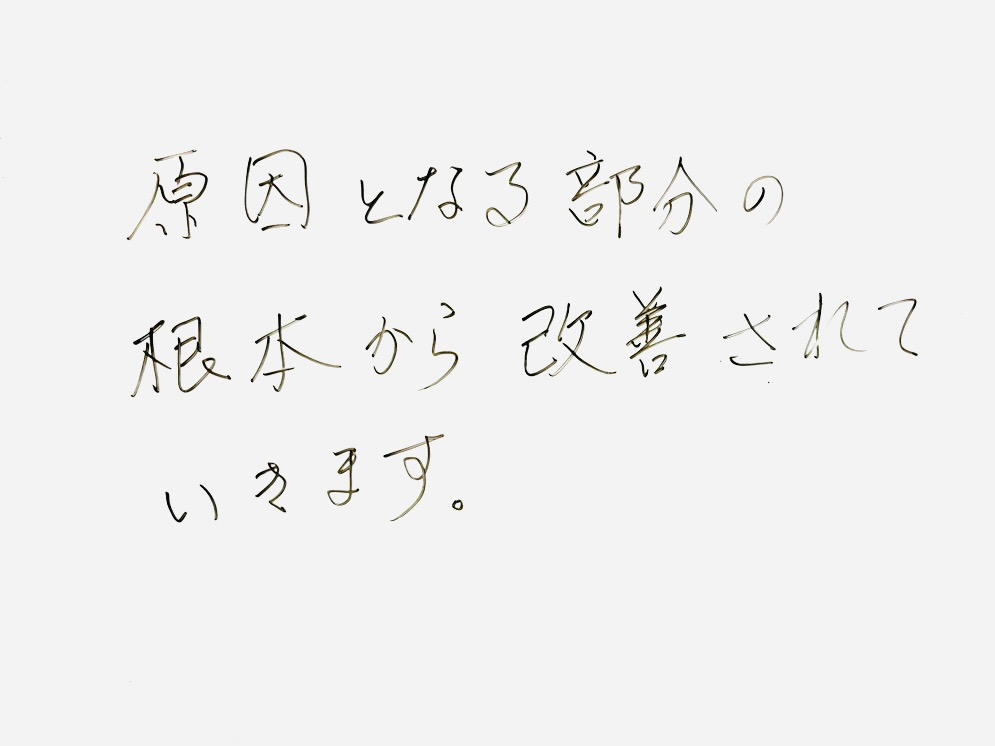 原因となる部分の
根本から改善されて
いきます。